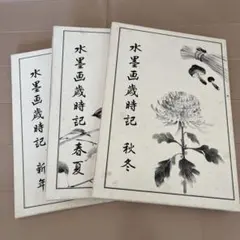 水墨画歳時記 新年
水墨画歳時記 春夏
水墨画歳時記 秋冬